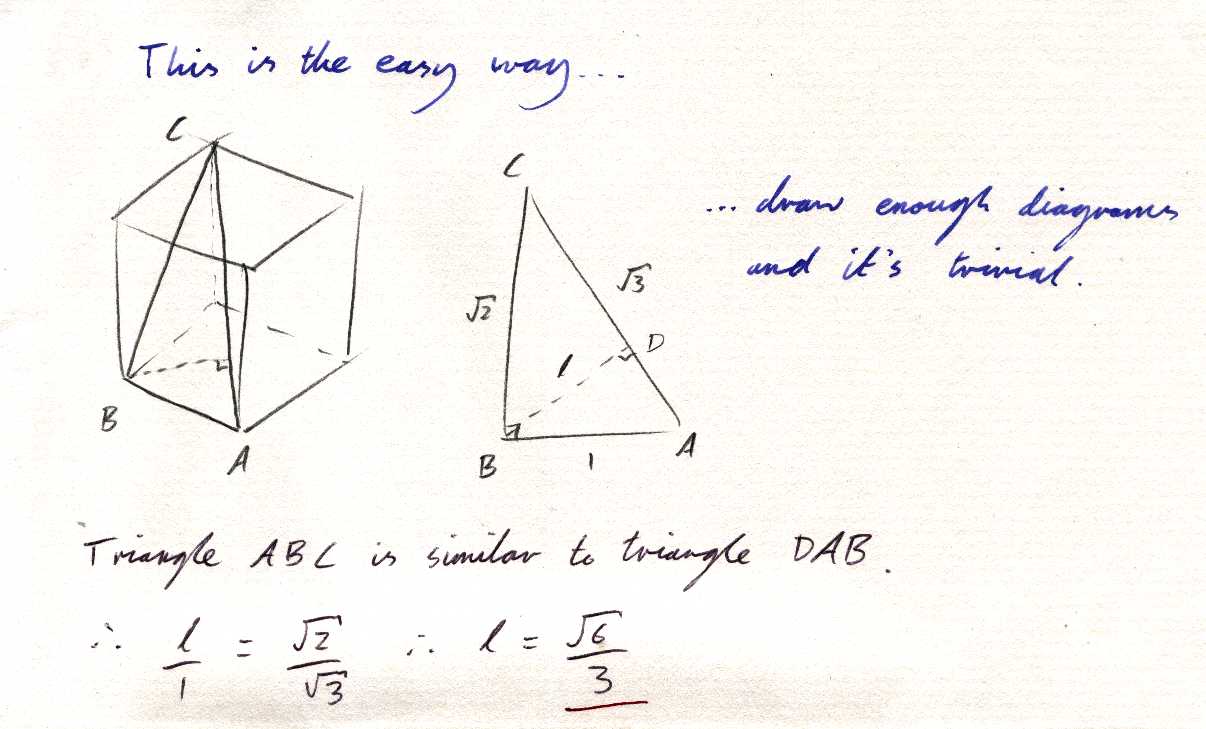 This is the easy way...
C
B
A
C
√2
√3
l
D
B
1
A
... draw enough diagrams
and it's trivial.
Triangle ABC is similar to triangle DAB.
∴ l/1 = √2/√3 ∴ l = √6/3